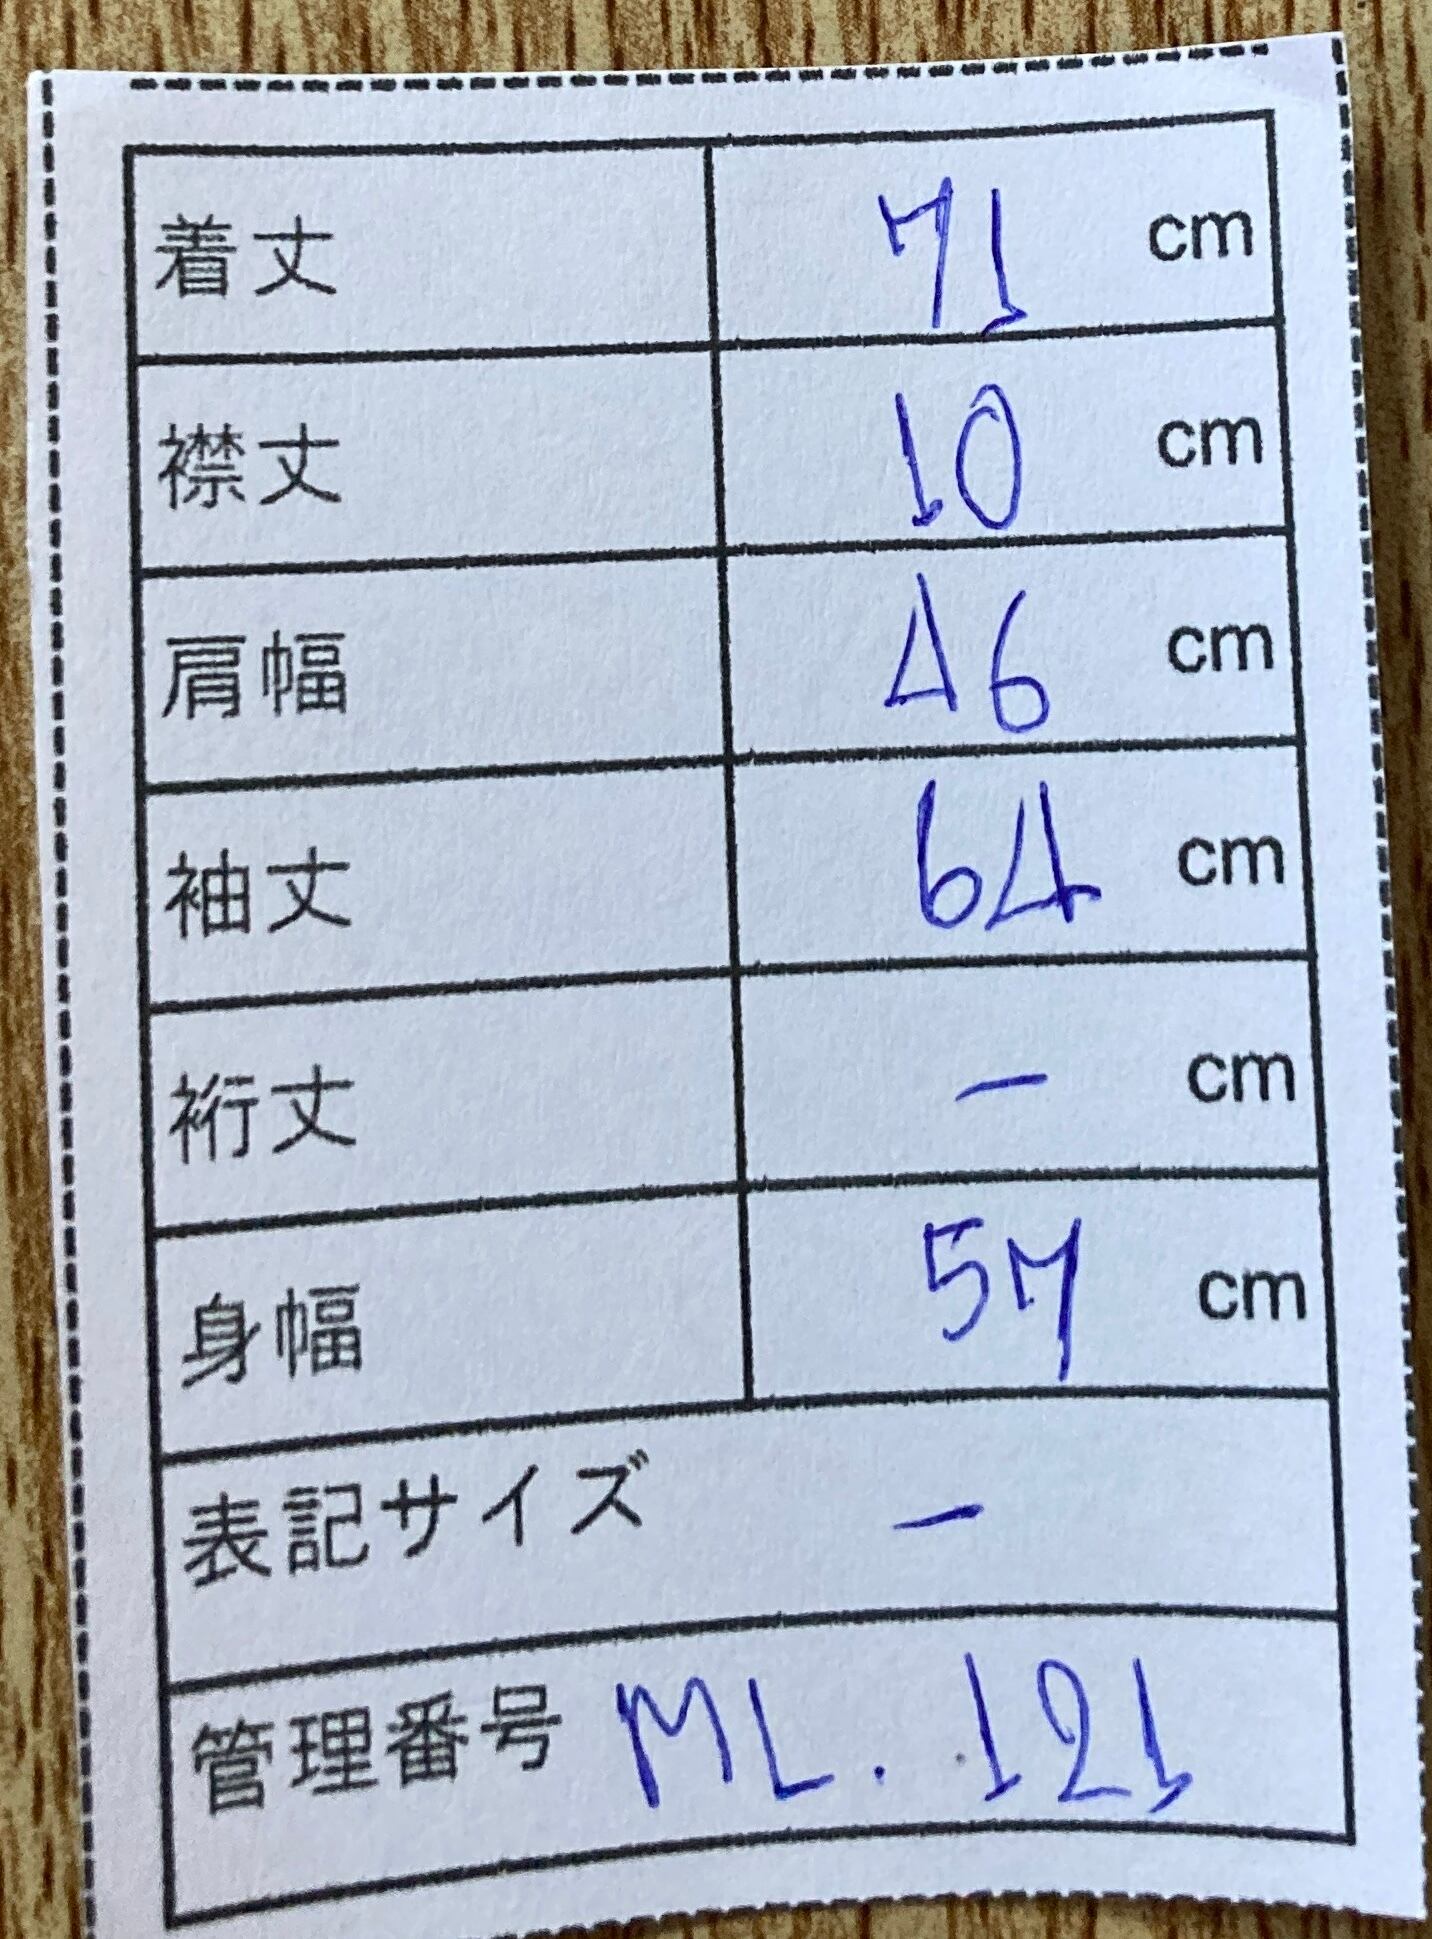 着丈 71 cm
襟丈 10 cm
肩幅 46 cm
袖丈 64 cm
裄丈 - cm
身幅 57 cm
表記サイズ -
管理番号 ML. 121